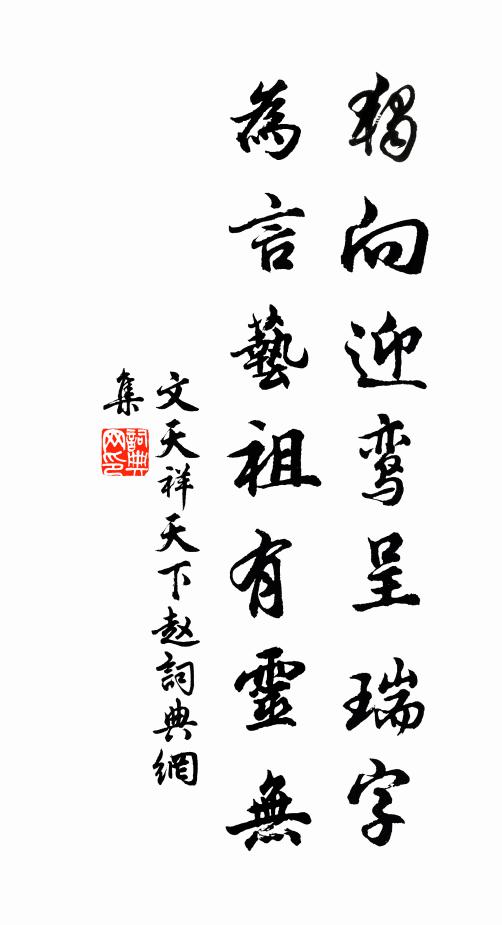 獨向迎鸾呈瑞字
為言藝祖有靈無
文天祥天下趙詞典網
集
詞典网印